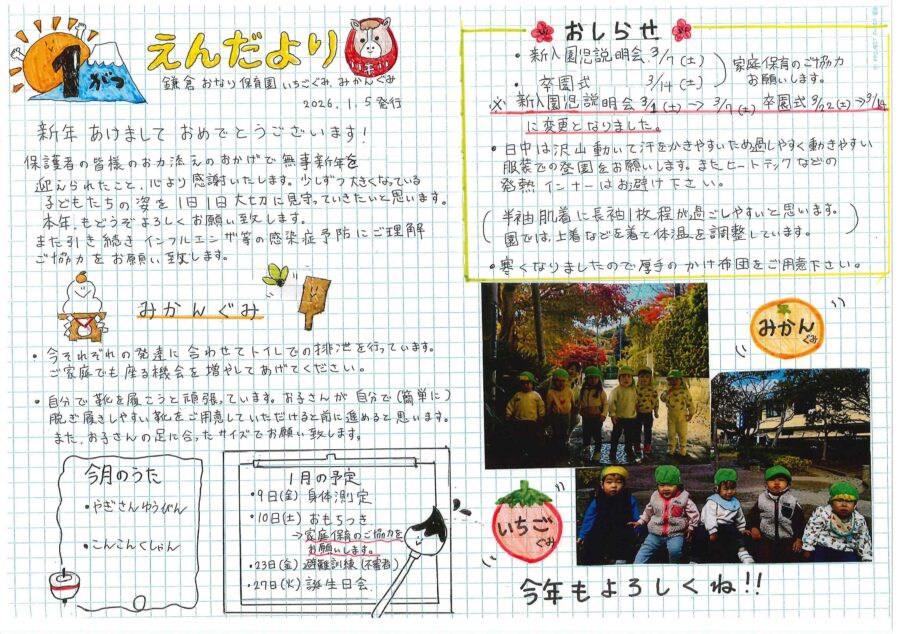 1がつ
えんだより
鎌倉 おなり保育園 いちごぐみ、みかんぐみ
2026.1.5発行
新年 あけまして おめでとうございます!
保護者の皆様のお力添えのおかげで無事新年を
迎えられたこと、心より感謝いたします。少しずつ大きくなっている
子どもたちの姿を1日1日大切に見守っていきたいと思います。
本年もどうぞよろしくお願い致します。
また引き続きインフルエンザ等の感染症予防にご理解
ご協力をお願い致します。
みかんぐみ
・今それぞれの発達に合わせてトイレでの排泄を行っています。
ご家庭でも座る機会を増やしてあげてください。
・自分で靴を履こうと頑張っています。お子さんが自分で(簡単に)
脱ぎ履きしやすい靴をご用意していただけると前に進めると思います。
また、お子さんの足に合ったサイズでお願い致します。
今月のうた
・やぎさんゆうびん
・こんこんくしゃん
1月の予定
・9日(金) 身体測定
・10日(土) おもちつき
→家庭保育のご協力を
お願いします。
・23日(金) 避難訓練(不審者)
・27日(火) 誕生日会
おしらせ
・新入園児説明会 3/7(土)
・卒園式 3/14(土)
家庭保育のご協力
お願いします。
※新入園児説明会3/1(土)→3/7(土) 卒園式3/22(土)→3/14
に変更となりました。
・日中は沢山動いて汗をかきやすいため過しやすく動きやすい
服装での登園をお願いします。またヒートテックなどの
発熱インナーはお避け下さい。
(半袖肌着に長袖1枚程が過ごしやすいと思います。
園では上着などを着て体温を調整しています。)
・寒くなりましたので厚手のかけ布団をご用意下さい。
みかんぐみ
いちごぐみ
今年もよろしくね!!